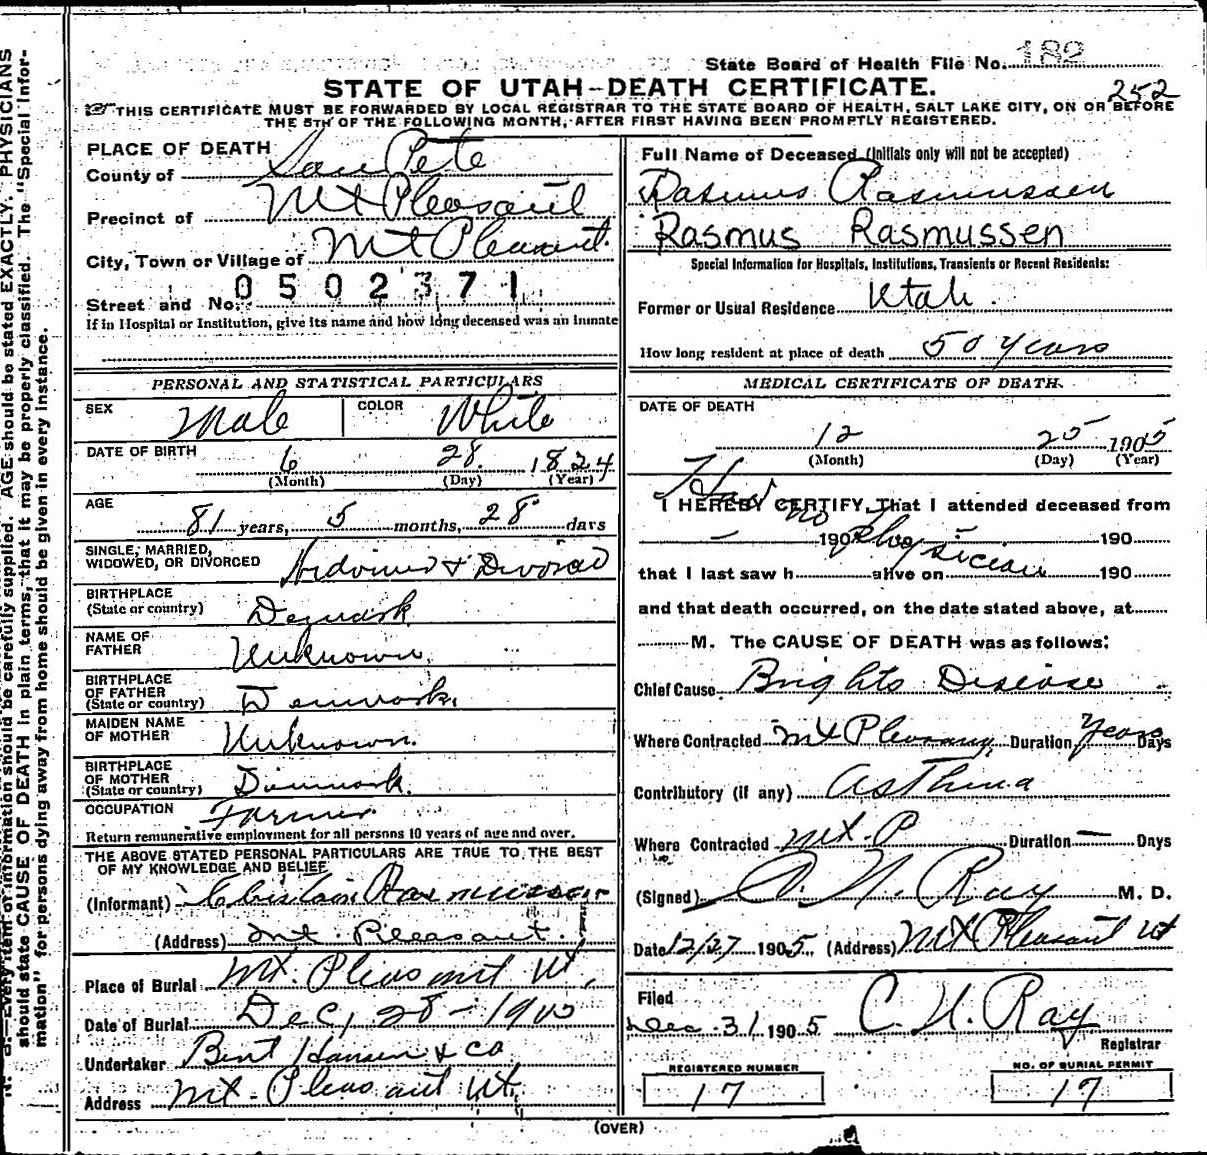 State Board of Health File No. 182
STATE OF UTAH-DEATH CERTIFICATE.
252
THIS CERTIFICATE MUST BE FORWARDED BY LOCAL REGISTRAR TO THE STATE BOARD OF HEALTH, SALT LAKE CITY, ON OR BEFORE
THE 5TH OF THE FOLLOWING MONTH, AFTER FIRST HAVING BEEN PROMPTLY REGISTERED.
PLACE OF DEATH
County of San Pete
Precinct of Mt Pleasant
City, Town or Village of Mt Pleasant.
0502371
Street and No.
If in Hospital or Institution, give its name and how long deceased was an inmate
PERSONAL AND STATISTICAL PARTICULARS
SEX Male COLOR White
DATE OF BIRTH 6 28. 1824
(Month) (Day) (Year)
AGE
81 years, 5 months, 28 days
SINGLE, MARRIED,
WIDOWED, OR DIVORCED
BIRTHPLACE
(State or country) Denmark
NAME OF
FATHER Unknown.
BIRTHPLACE
OF FATHER
(State or country) Denmark.
MAIDEN NAME
OF MOTHER Unknown.
BIRTHPLACE
OF MOTHER
(State or country) Dinmark.
OCCUPATION Farmer.
Return remunerative employment for all persons 10 years of age and over.
THE ABOVE STATED PERSONAL PARTICULARS ARE TRUE TO THE BEST
OF MY KNOWLEDGE AND BELIEF
(Informant) Rasmussen
(Address) Mt. Pleasant.
Place of Burial Mt. Pleasant Ut,
Date of Burial Dec, 28-1905
Undertaker Bent Hansen & Co
Address Mt. Pleasant Ut,
Full Name of Deceased (Initials only will not be accepted)
Rasmus Rasmussen
Rasmus Rasmussen
Special Information for Hospitals, Institutions, Transients or Recent Residents:
Former or Usual Residence Utah.
How long resident at place of death 50 years
MEDICAL CERTIFICATE OF DEATH.
DATE OF DEATH
12 25 1905
(Month) (Day) (Year)
Had no physician
I HEREBY CERTIFY, That I attended deceased from
190 190
that I last saw h alive on 190
and that death occurred, on the date stated above, at
M. The CAUSE OF DEATH was as follows:
Chief Cause Brights Disease
Where Contracted Mt Pleasant, Duration years Days
Contributory (if any) Asthma
Where Contracted Mt. P Duration — Days
(Signed) C. H. Ray M. D.
Date 12/27 1905. (Address) Mt Pleasant Ut
Filed
Dec. 31 1905 C. H. Ray
Registrar
REGISTERED NUMBER
17
NO. OF BURIAL PERMIT
17
(OVER)
N. B.—Every item of information should be carefully supplied. AGE should be stated EXACTLY. PHYSICIANS
should state CAUSE OF DEATH in plain terms, that it may be properly classified. The "Special Infor-
mation" for persons dying away from home should be given in every instance.